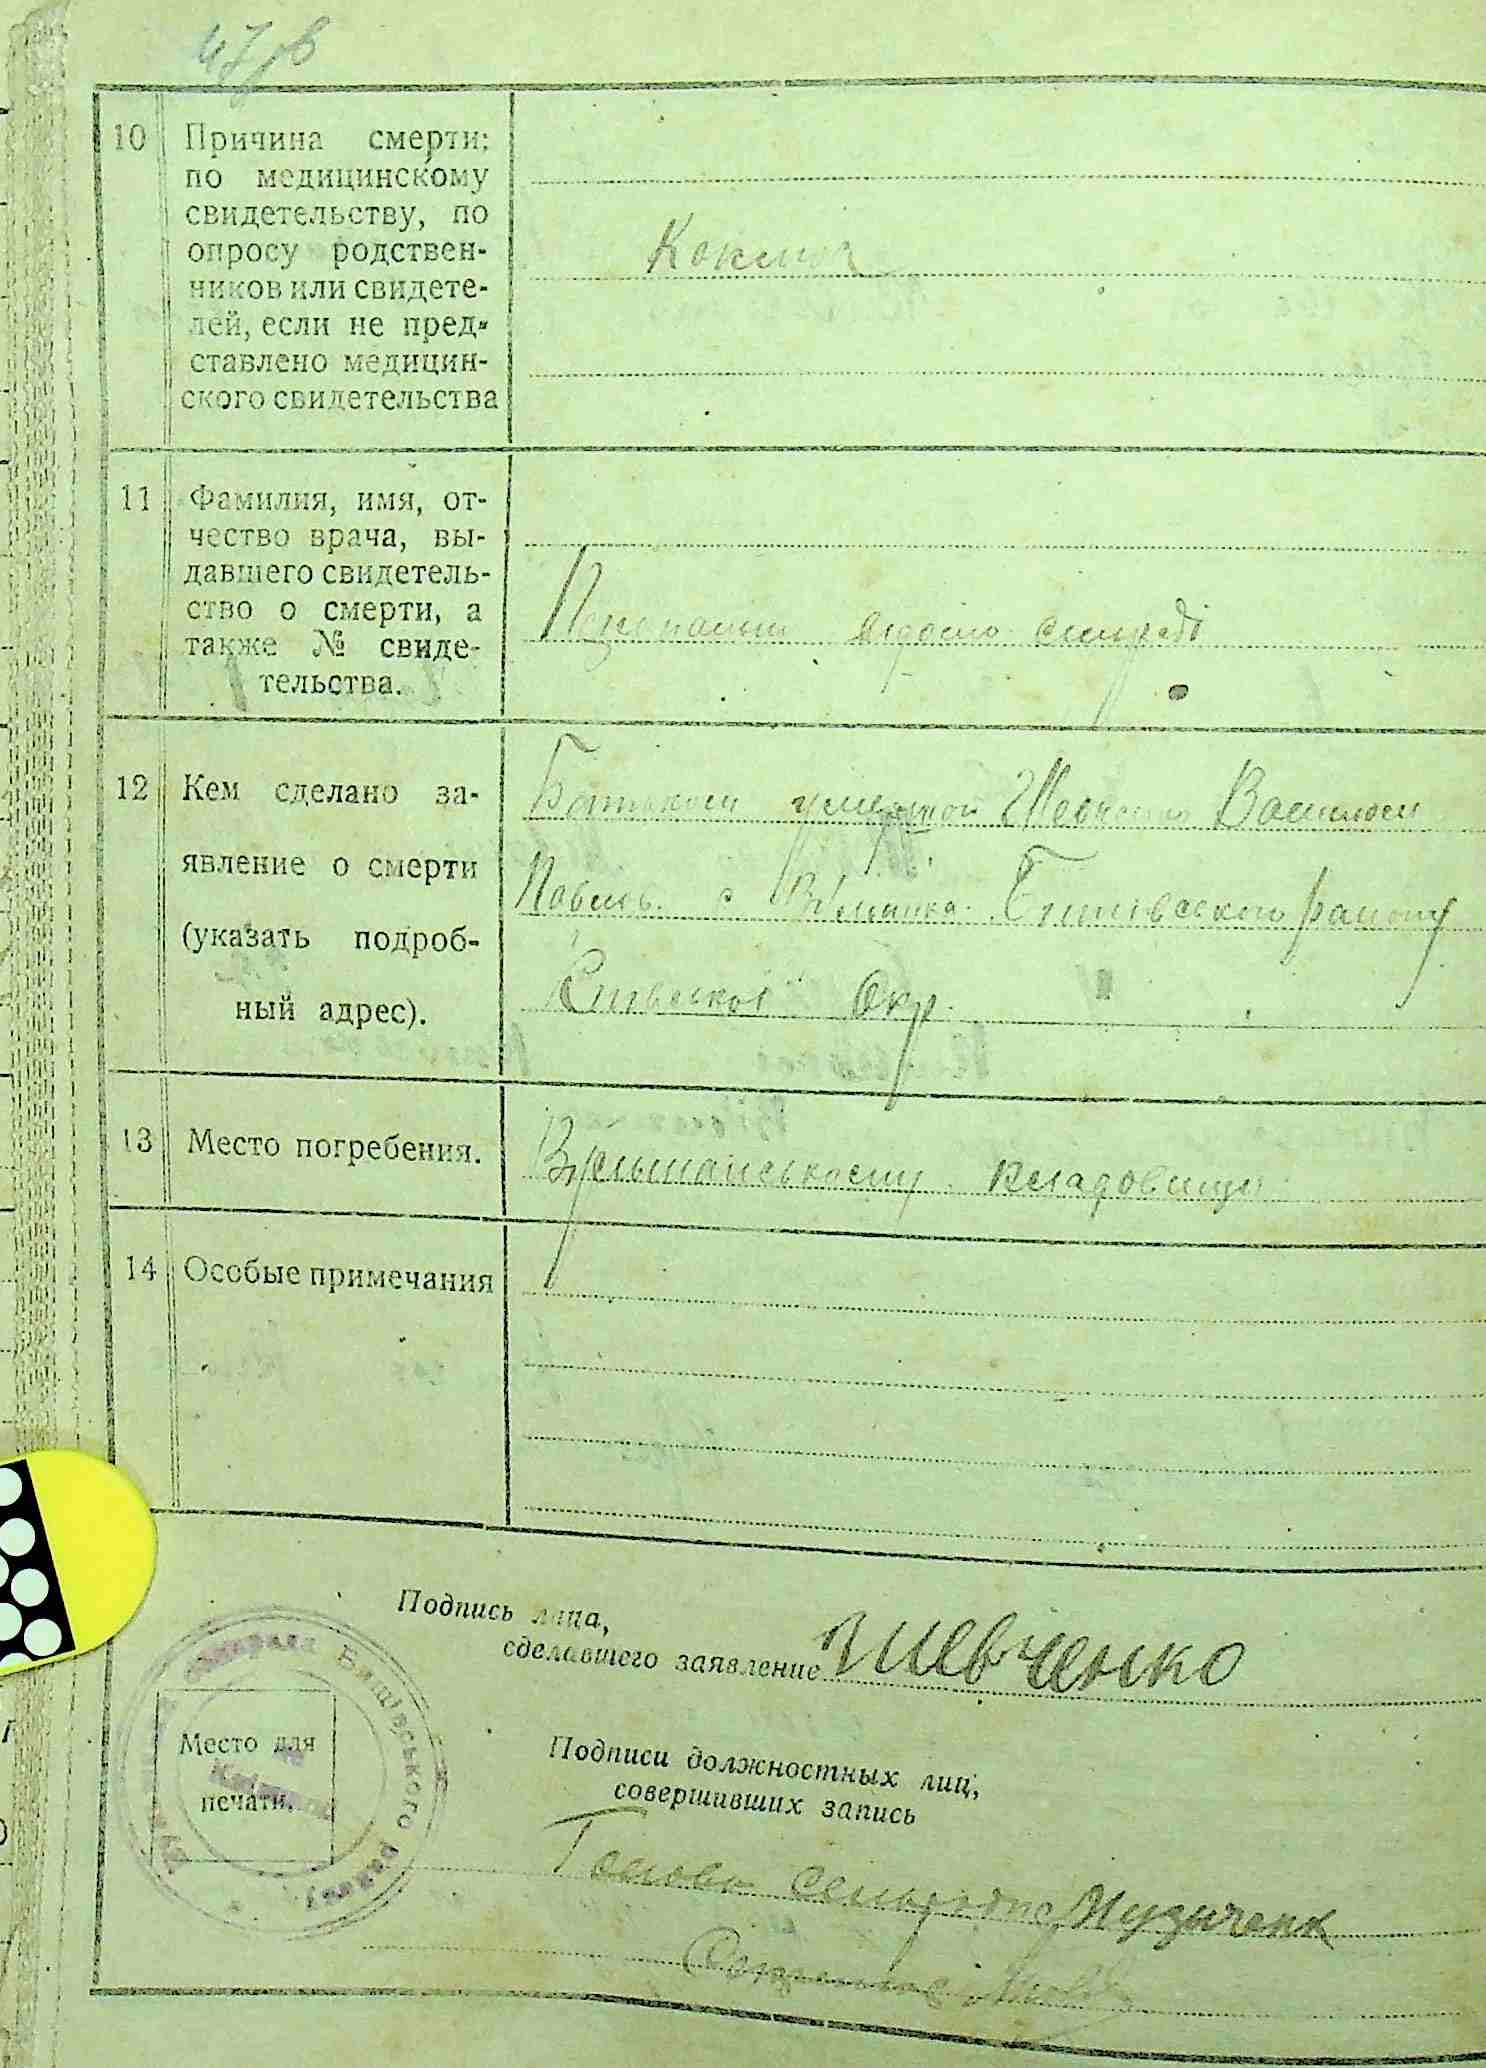 10 Причина смерти:
по медицинскому
свидетельству, по
опросу родствен-
ников или свидете-
лей, если не пред-
ставлено медицин-
ского свидетельства
Коклюш
11 Фамилия, имя, от-
чество врача, вы-
давшего свидетель-
ство о смерти, а
также № свиде-
тельства.
12 Кем сделано за-
явление о смерти
(указать подроб-
ный адрес).
Батьком умершой Шевченко Василом
Павлов. с Бишівського району
Київської Окр.
13 Место погребения.
кладовищу
14 Особые примечания
Подпись лица,
сделавшего заявление Шевченко
Место для
печати.
Бишівського району
Подписи должностных лиц,
совершивших запись
Голова сельради Музиченк